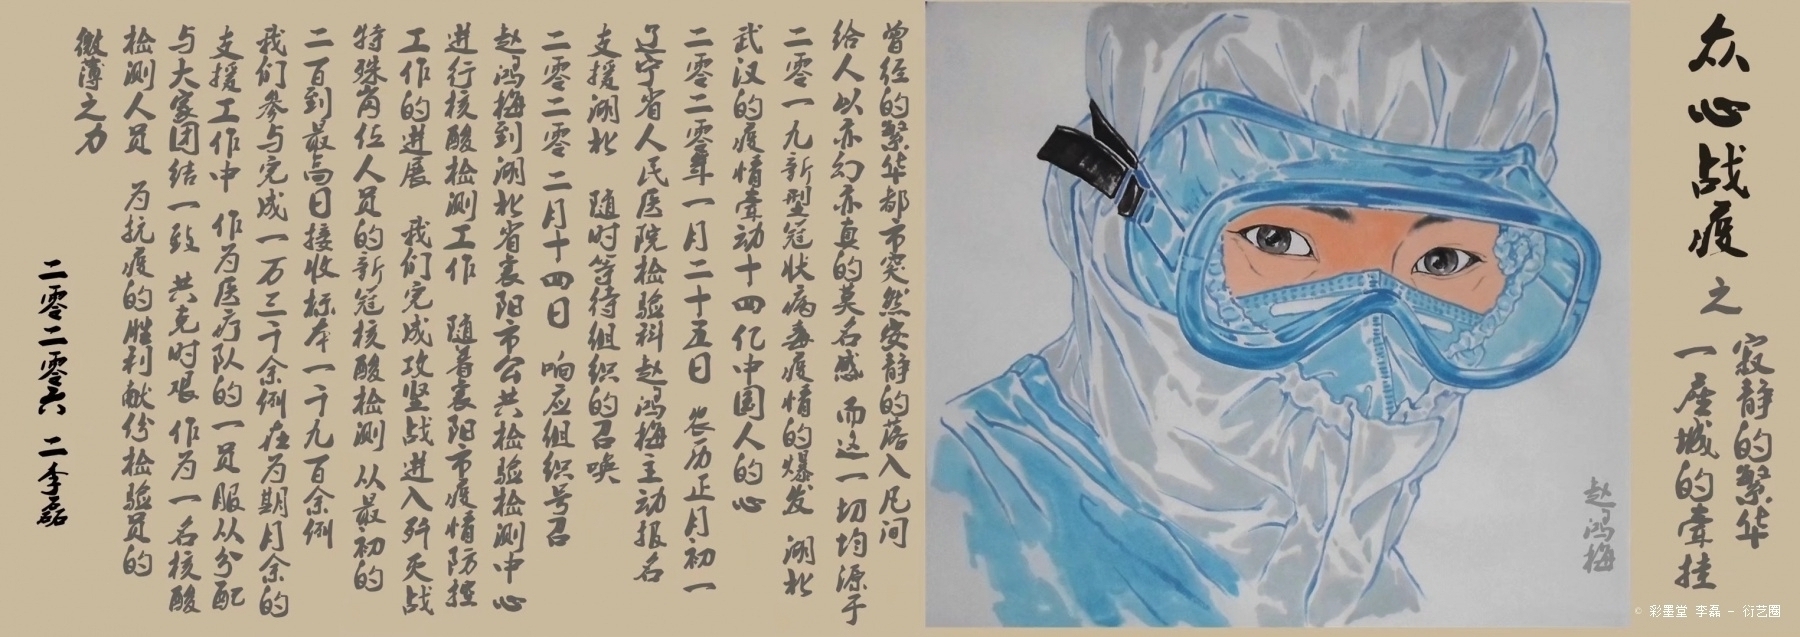 众心战疫之
寂静的繁华
一座城的牵挂
赵鸿梅
曾经的繁华都市突然安静的落入凡间
给人以亦幻亦真的莫名感 而这一切均源于
二零一九新型冠状病毒疫情的爆发 湖北
武汉的疫情牵动十四亿中国人的心
二零二零年一月二十五日 农历正月初一
辽宁省人民医院检验科赵鸿梅主动报名
支援湖北 随时等待组织的召唤
二零二零 二月十四日 响应组织号召
赵鸿梅到湖北省襄阳市公共检验检测中心
进行核酸检测工作 随着襄阳市疫情防控
工作的进展 我们完成攻坚战进入歼灭战
特殊岗位人员的新冠核酸检测 从最初的
二百到最高日接收标本一千九百余例
我们参与完成一万三千余例在为期月余的
支援工作中 作为医疗队的一员服从分配
与大家团结一致 共克时艰 作为一名核酸
检测人员 为抗疫的胜利献份检验员的
微薄之力
二零二零六 二李磊
© 彩墨堂 李磊 - 衍艺圈